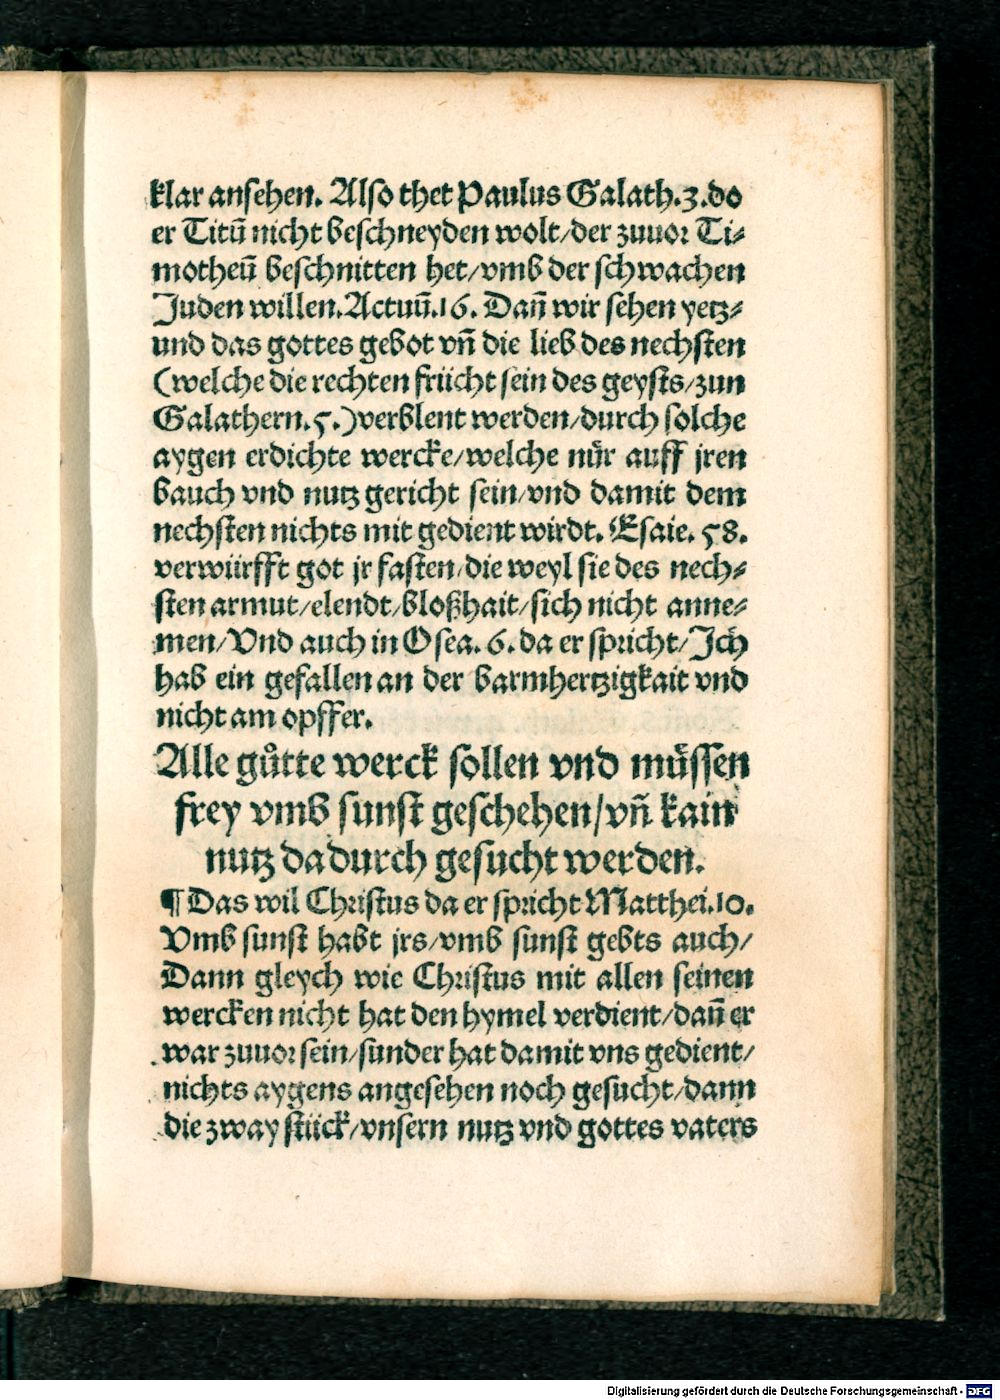 klar ansehen. Also thet Paulus Galath.3.do
er Titū nicht beschneyden wolt/der zuuor Ti⸗
motheū beschnitten het/vmb der schwachen
Juden willen.Actuū.16. Dañ wir sehen yetz⸗
und das gottes gebot vñ die lieb des nechsten
(welche die rechten früicht sein des geysts/zun
Galathern.5.)verblent werden/durch solche
aygen erdichte wercke/welche nuͤr auff jren
bauch vnd nutz gericht sein/vnd damit dem
nechsten nichts mit gedient wirdt. Esaie. 58.
verwüirfft got jr fasten/die weyl sie des nech⸗
sten armut/elendt/bloßhait/sich nicht anne⸗
men/Vnd auch in Osea. 6. da er spricht/Ich
hab ein gefallen an der barmhertzigkait vnd
nicht am opffer.
Alle gůtte werck sollen vnd muͤssen
frey vmb sunst geschehen/vñ kain
nutz dadurch gesucht werden.
¶Das wil Christus da er spricht Matthei.10.
Vmb sunst habt jrs/vmb sunst gebts auch/
Dann gleych wie Christus mit allen seinen
wercken nicht hat den hymel verdient/dañ er
war zuuor sein/sunder hat damit vns gedient/
nichts aygens angesehen noch gesucht/dann
die zway stüick/vnsern nutz vnd gottes vaters
Digitalisierung gefördert durch die Deutsche Forschungsgemeinschaft - DFG